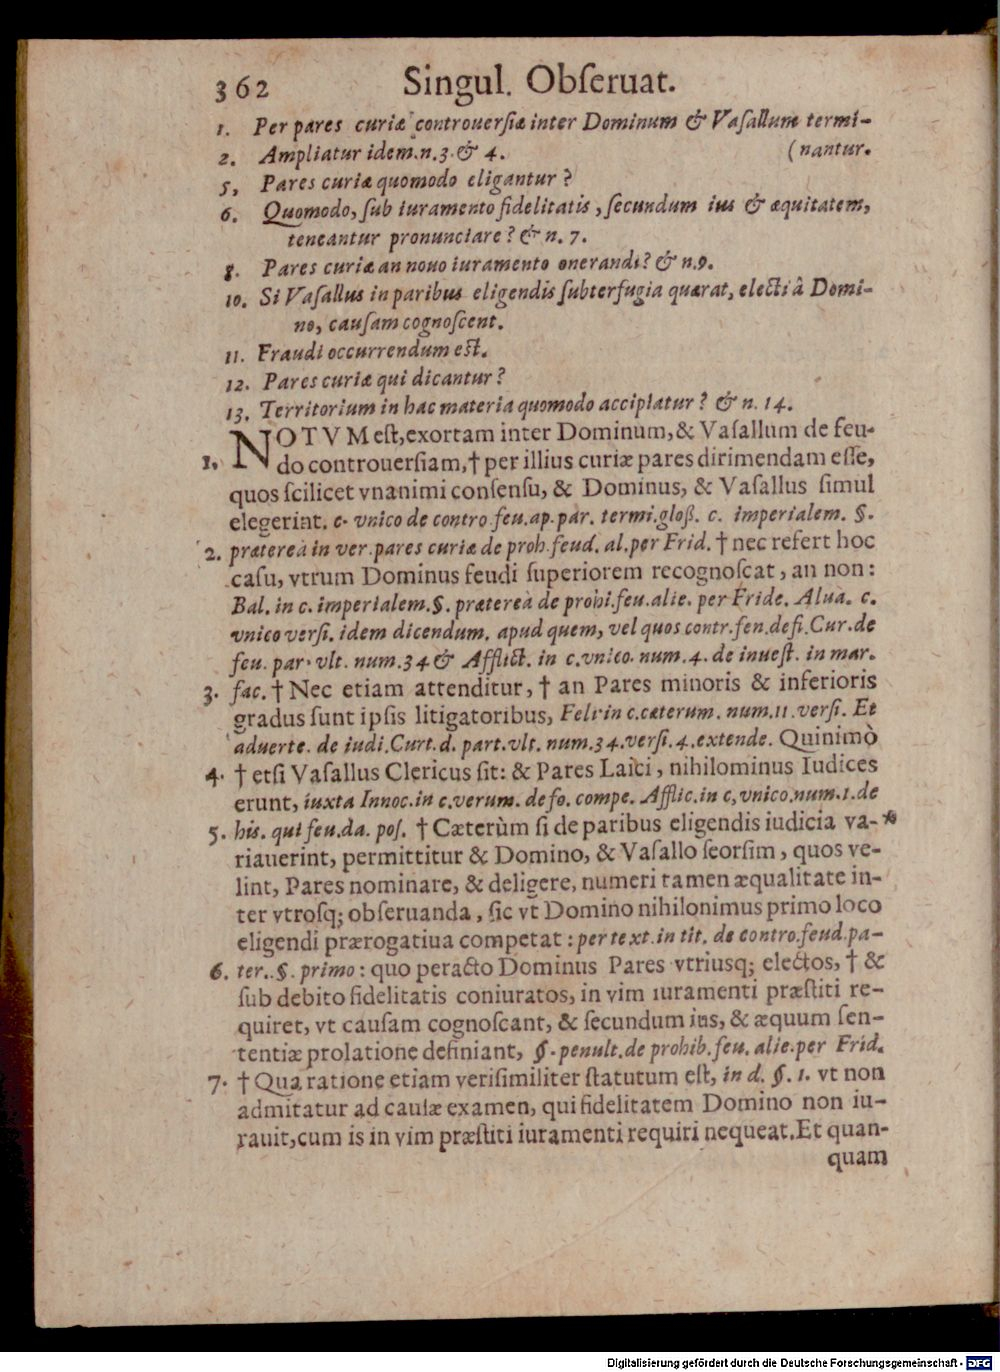 362 Singul. Obſeruat.
1. Per pares curiæ controuerſiæ inter Dominum & Vaſallum termi-
2. Ampliatur idem. n. 3. & 4. (nantur.
5, Pares curiæ quomodo eligantur?
6. Quomodo, ſub iuramento fidelitatis, ſecundum ius & æquitatem,
teneantur pronunciare? & n. 7.
8. Pares curiæ an nouo iuramento onerandi? & n.9.
10. Si Vaſallus in paribus eligendis ſubterfugia quærat, electi â Domi-
no, cauſam cognoſcent.
11. Fraudi occurrendum est.
12. Pares curiæ qui dicantur?
13. Territorium in hac materia quomodo accipiatur? & n. 14.
NOTVM eſt, exortam inter Dominum, & Vaſallum de feu-
1. do controuerſiam, † per illius curiæ pares dirimendam eſſe,
quos ſcilicet vnanimi conſenſu, & Dominus, & Vaſallus ſimul
elegerint. c. vnico de contro feu. ap. par. termi. gloß. c. imperialem. §.
2. præterea in ver. pares curiæ de proh. feud. al. per Frid. † nec refert hoc
caſu, vtrum Dominus feudi ſuperiorem recognoſcat, an non:
Bal. in c. imperialem. §. præterea de prohi. feu. alie. per Fride. Alua. c.
vnico verſi. idem dicendum. apud quem, vel quos contr. fen. defi. Cur. de
feu. par. vlt. num. 34 & Afflict. in c. vnico. num. 4. de inueſt. in mar.
3. fac. † Nec etiam attenditur, † an Pares minoris & inferioris
gradus ſunt ipſis litigatoribus, Felin in c. cæterum. num. 11. verſi. Et
aduerte. de iudi. Curt. d. part. vlt. num. 34. verſi. 4. extende. Quinimò
4. † etſi Vaſallus Clericus ſit: & Pares Laici, nihilominus Iudices
erunt, iuxta Innoc. in c. verum. de fo. compe. Afflic. in c, vnico. num. 1. de
5. his. qui feu. da. poſ. † Cæterùm ſi de paribus eligendis iudicia va- *
riauerint, permittitur & Domino, & Vaſallo ſeorſim, quos ve-
lint, Pares nominare, & deligere, numeri tamen æqualitate in-
ter vtroſq; obſeruanda, ſic vt Domino nihilonimus primo loco
eligendi prærogatiua competat: per text. in tit. de contro. feud. pa-
6. ter. . §. primo: quo peracto Dominus Pares vtriusq; electos, † &
ſub debito fidelitatis coniuratos, in vim iuramenti præſtiti re-
quiret, vt cauſam cognoſcant, & ſecundum ius, & æquum ſen-
tentiæ prolatione definiant, §. penult. de prohib. feu. alie. per Frid.
7. † Qua ratione etiam veriſimiliter ſtatutum eſt, in d. §. 1. vt non
admitatur ad cauſæ examen, qui fidelitatem Domino non iu-
rauit, cum is in vim præſtiti iuramenti requiri nequeat. Et quan-
quam
Digitalisierung gefördert durch die Deutsche Forschungsgemeinschaft - DFG